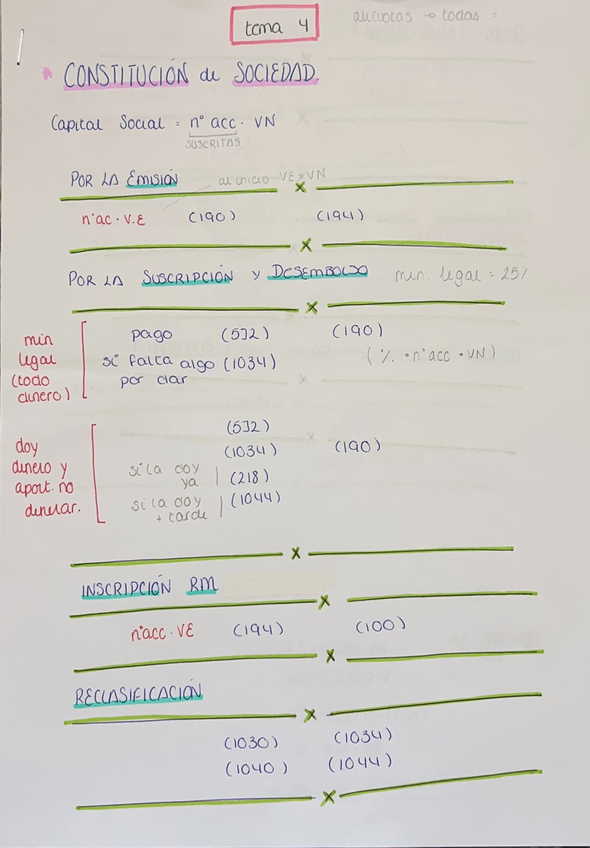 alicuotas → todas =
tema 4
* CONSTITUCIÓN de SOCIEDAD
Capital Social = nº acc · VN
SUSCRITAS
POR LA EMISIÓN
al inicio VE=VN
nºac · V.E (190) (194)
POR LA SUSCRIPCIÓN Y DESEMBOLSO min. legal = 25%
min legal (todo dinero)
pago (572) (190)
si falta algo (1034) (% · nºacc · VN)
por dar
doy dinero y aport. no dinerar.
(572)
(1034) (190)
si la doy ya (218)
si la doy + tarde (1044)
INSCRIPCIÓN RM
nºacc · VE (194) (100)
RECLASIFICACIÓN
(1030) (1034)
(1040) (1044)